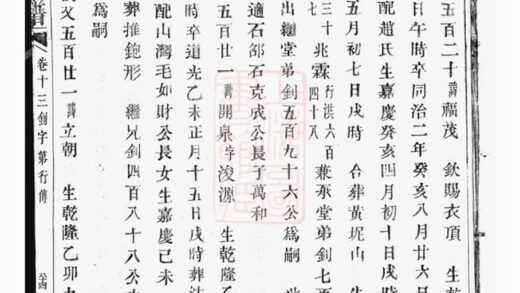 五百二十 福茂 欽賜衣頂 生
日午時卒同治二年癸亥八月廿六日
配趙氏生嘉慶癸亥四月初十日戌時
五月初七日戌時 合葬黃埿山 生
三十 兆霖 行洪六百四十八 兼承堂弟釗七百
出繼堂弟釗五百九十六公爲嗣
適石部石克成公長子萬和
五百廿一 開泉字浚源 生乾隆乙
時卒道光乙未正月十五日戌時葬法
配山灣毛如財公長女生嘉慶己未
葬推鉋形 繼兄釗四百八十八公
爲嗣
又五百廿一 立朝 生乾隆乙卯九
譜 卷十三釗字第行傳